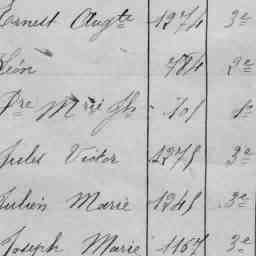 Ernest Aug.te 1274 3e
Léon 784 2e
P.re M.rie J.h 701 1e
Jules Victor 1275 3e
Julien Marie 1245 3e
Joseph Marie 1167 3e